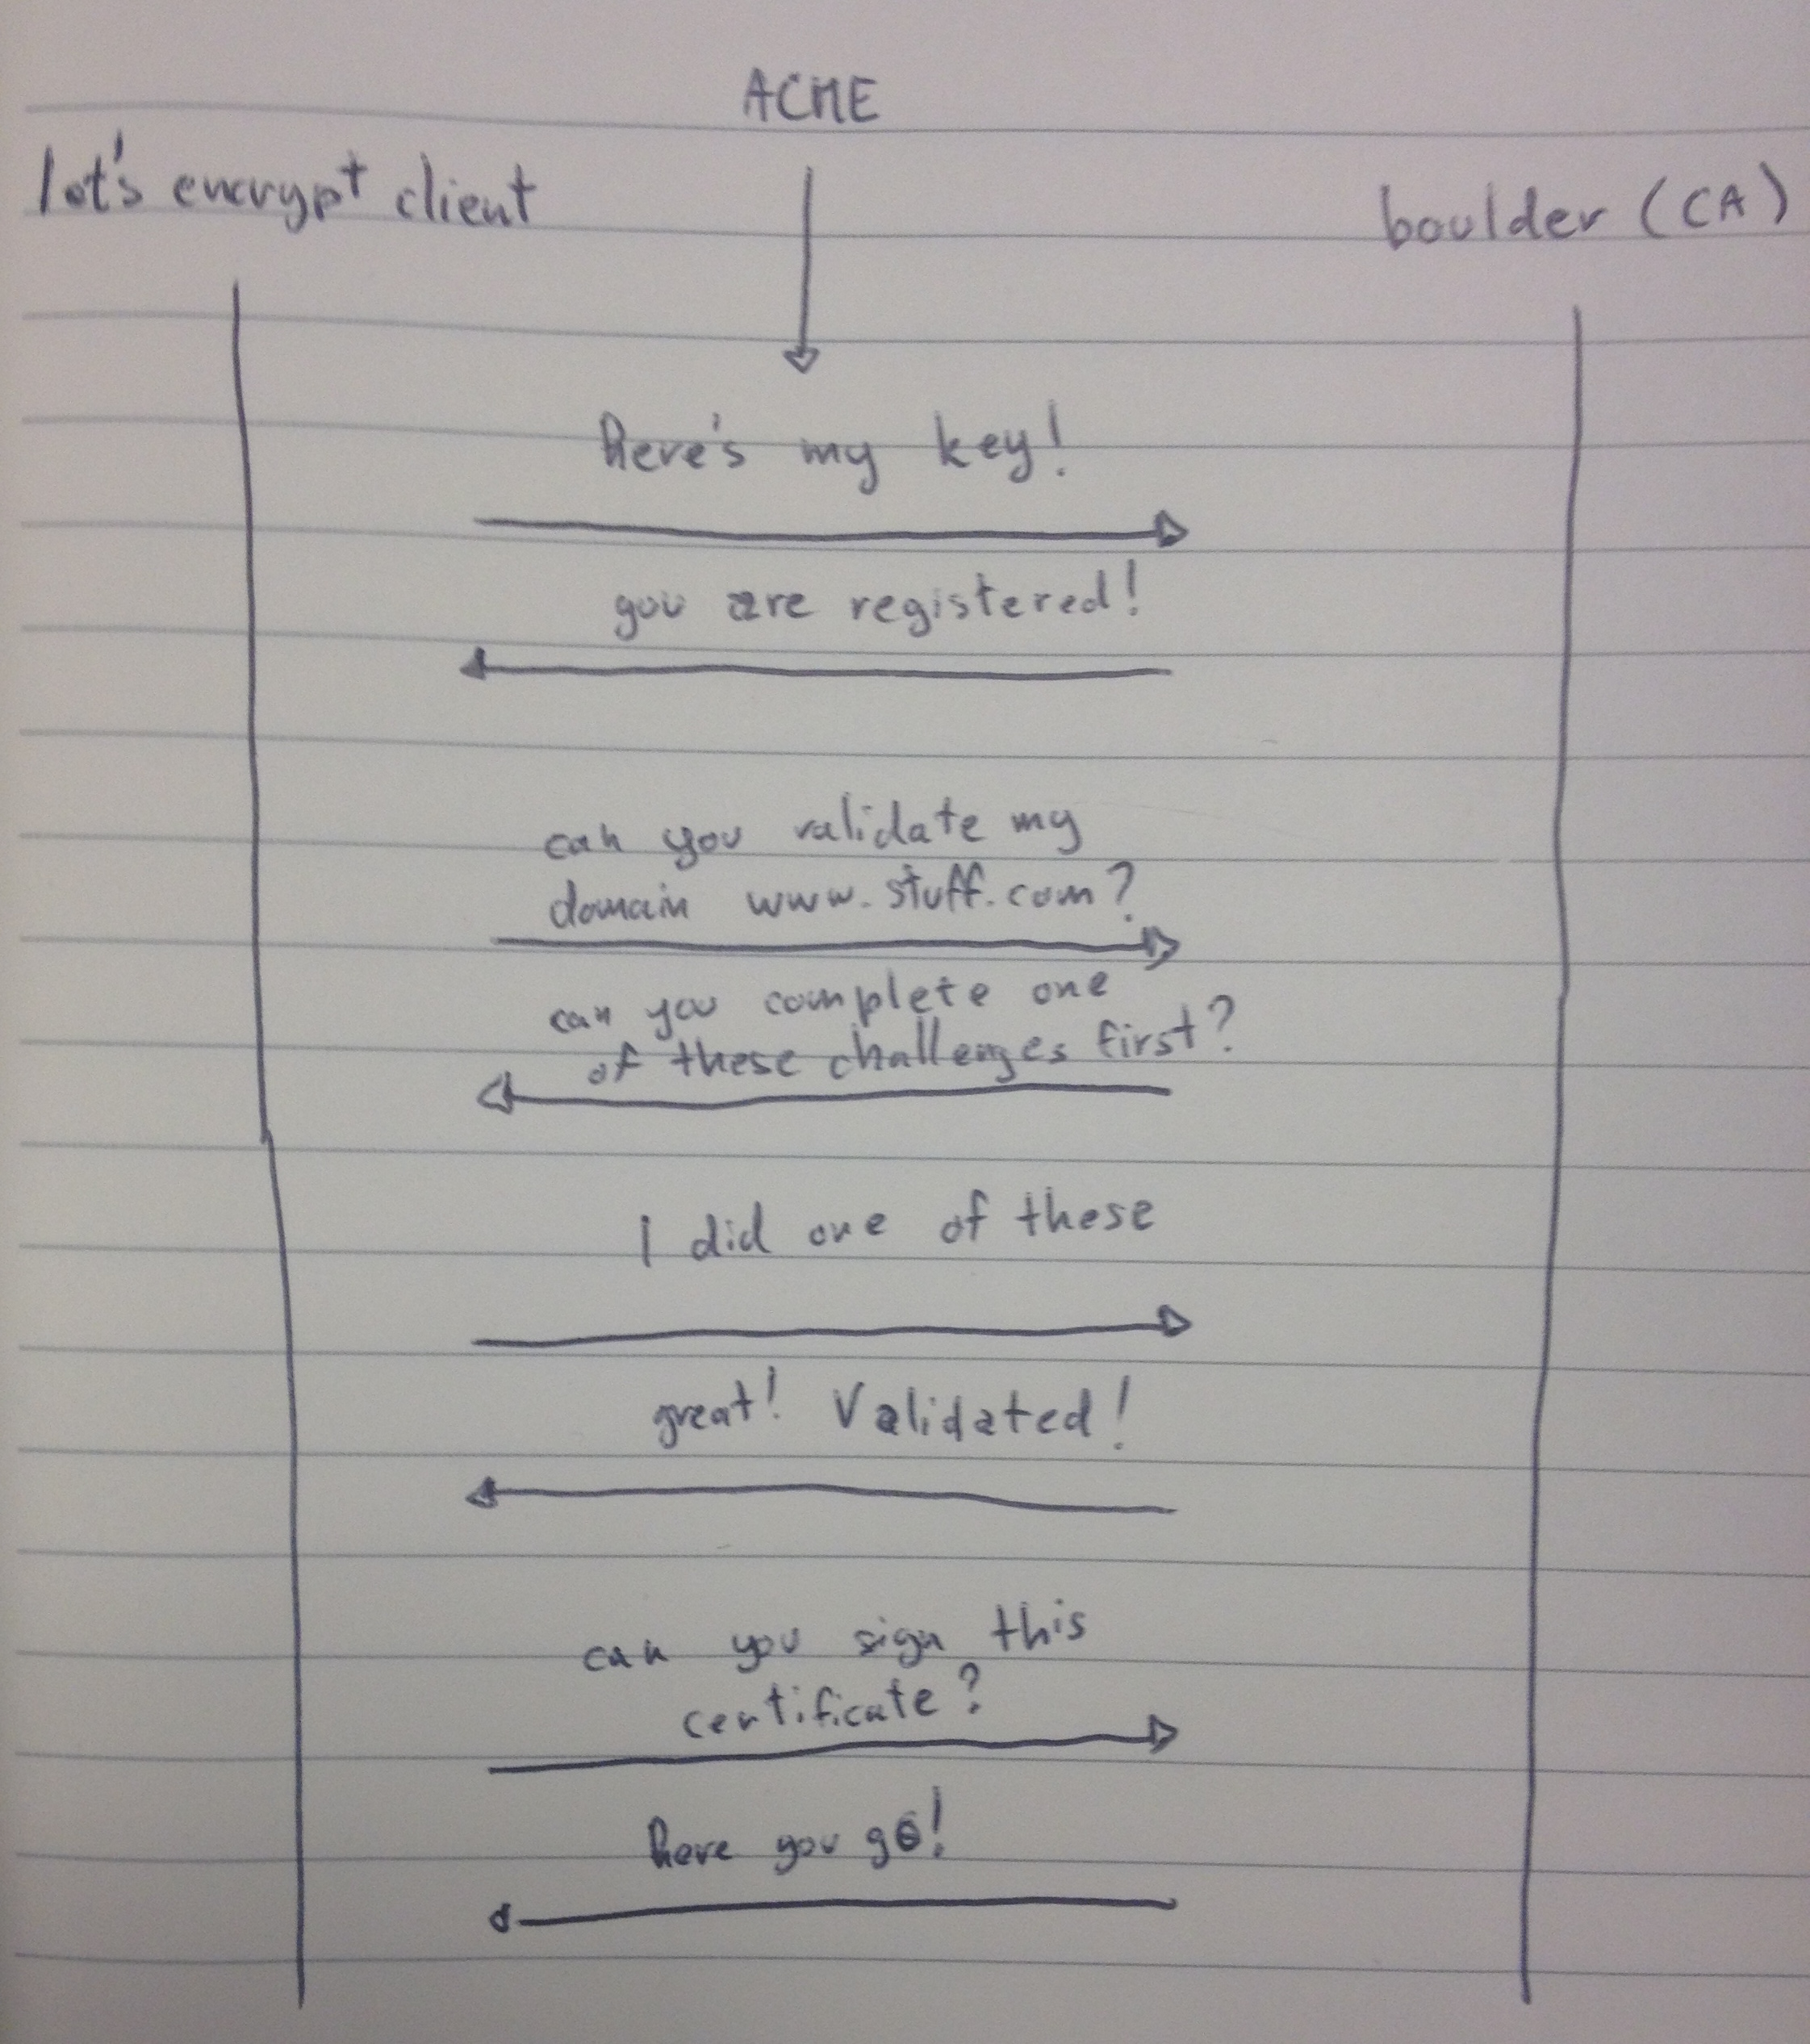 ACME
let's encrypt client
boulder (CA)
here's my key!
you are registered!
can you validate my
domain www.stuff.com?
can you complete one
of these challenges first?
I did one of these
great! Validated!
can you sign this
certificate?
here you go!